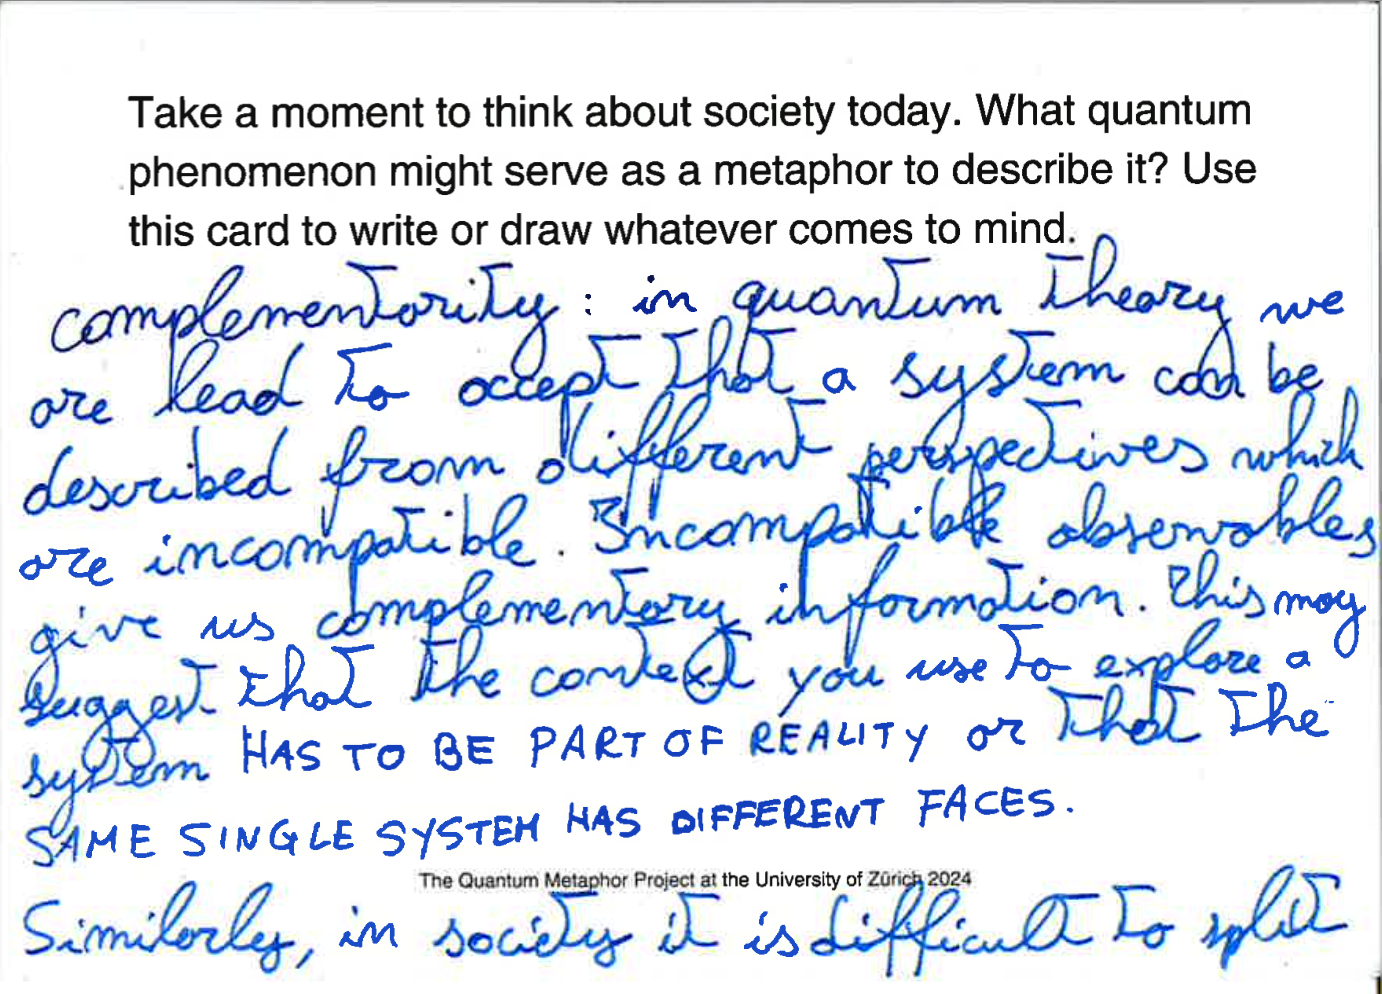 Take a moment to think about society today. What quantum
phenomenon might serve as a metaphor to describe it? Use
this card to write or draw whatever comes to mind.
complementarity : in quantum theory we
are lead to accept that a system can be
described from different perspectives which
are incompatible. Incompatible observables
give us complementary information. This may
suggest that the context you use to explore a
system HAS TO BE PART OF REALITY or that the
SAME SINGLE SYSTEM HAS DIFFERENT FACES.
The Quantum Metaphor Project at the University of Zürich 2024
Similarly, in society it is difficult to split